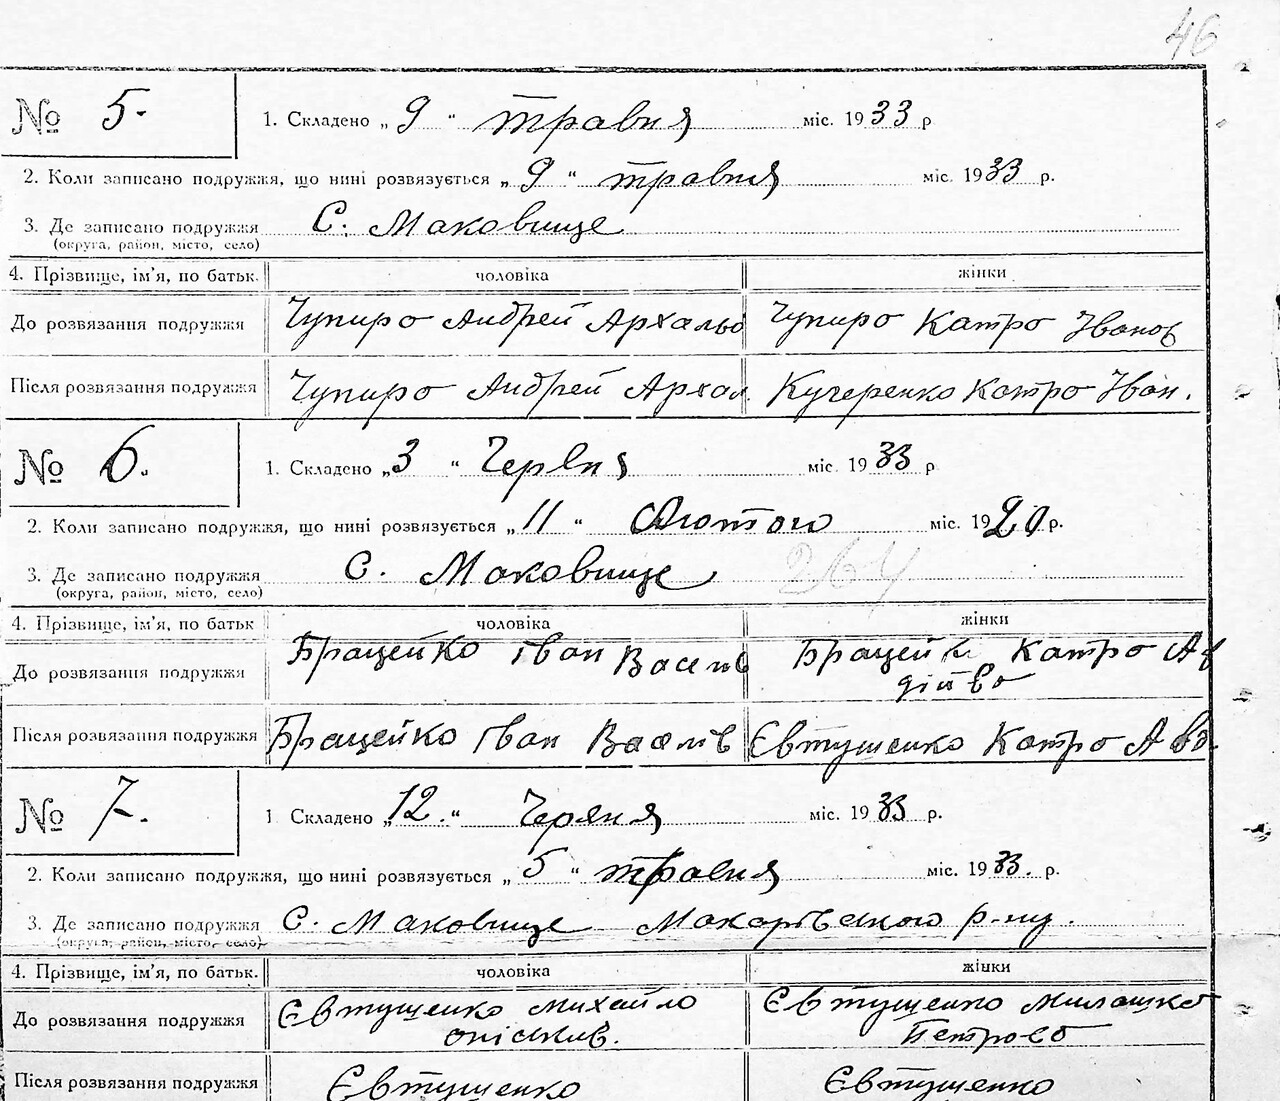 46
№ 5. 1. Складено „ 9 " травня міс. 1933 р
2. Коли записано подружжя, що нині розвязується „ 9 " травня міс. 1933 р.
3. Де записано подружжя С. Маковище
(округа, район, місто, село)
4. Прізвище, ім'я, по батьк. чоловіка жінки
До розвязання подружжя Чупиро Андрей Архальо Чупиро Катро Іванов
Після розвязання подружжя Чупиро Андрей Архал Кучеренко Катро Іван.
№ 6. 1. Складено „ 3 " Червня міс. 1933 р
2. Коли записано подружжя, що нині розвязується „ 11 " Лютого міс. 1920 р.
3. Де записано подружжя С. Маковище 264
(округа, район, місто, село)
4. Прізвище, ім'я, по батьк чоловіка жінки
До розвязання подружжя Брацейко Іван Васелів Брацейк Катро Ав
дієво
Після розвязання подружжя Брацейко Іван Васелів Євтушенко Катро Авд.
№ 7. 1 Складено „ 12. " Червня міс. 1933 р.
2. Коли записано подружжя, що нині розвязується „ 5 " травня міс. 1933. р.
3. Де записано подружжя С. Маковище Макарівського р-ну.
(округа, район, місто, село)
4. Прізвище, ім'я, по батьк. чоловіка жінки
До розвязання подружжя Євтущенко Михайло Євтущенко Милашка
Петрово
Після розвязання подружжя Євтущенко Євтущенко